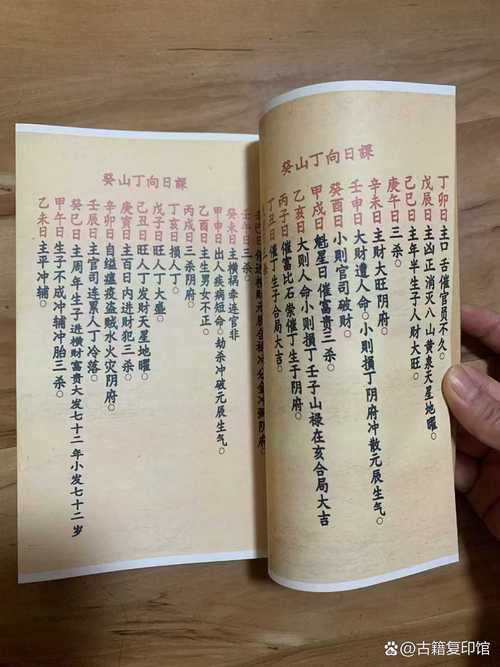 癸山丁向日課
丁卯日主口舌催官員不久。
戊辰日主凶正消灭八山黄泉天星地曜。
己巳日主年半生子人财大旺。
庚午日三杀。
辛未日主财大旺阴府。
壬申日大财遭人命。小则損丁阴府冲散元辰生气。
癸酉日小则官司破财。
甲戌日魁星日催富贵三杀。
乙亥日大则人命小则損丁壬子山禄在亥合局大吉
丙子日催富比石崇催丁生子阴府。
丁丑日催丁生子合局大吉
癸山丁向日課
壬午日三杀
癸未日主横祸牵连官非
甲申日出人疾病短命。劫杀冲破元辰生气。
乙酉日主生男女不正。
丙戌日三杀阴府。
丁亥日損人丁。
戊子日旺人丁大壐。
己丑日旺人丁发财天星地曜。
庚寅日主百日内进财犯三杀。
辛卯日自缢瘟疫盗贼水火灾阴府。
壬辰日主官司连累人丁冷落。
癸巳日主周年生子進横財富贵大发七十二年小发七十二岁
甲午日生子不成冲辅冲胎三杀。
乙未日主平冲辅。
古籍复印馆